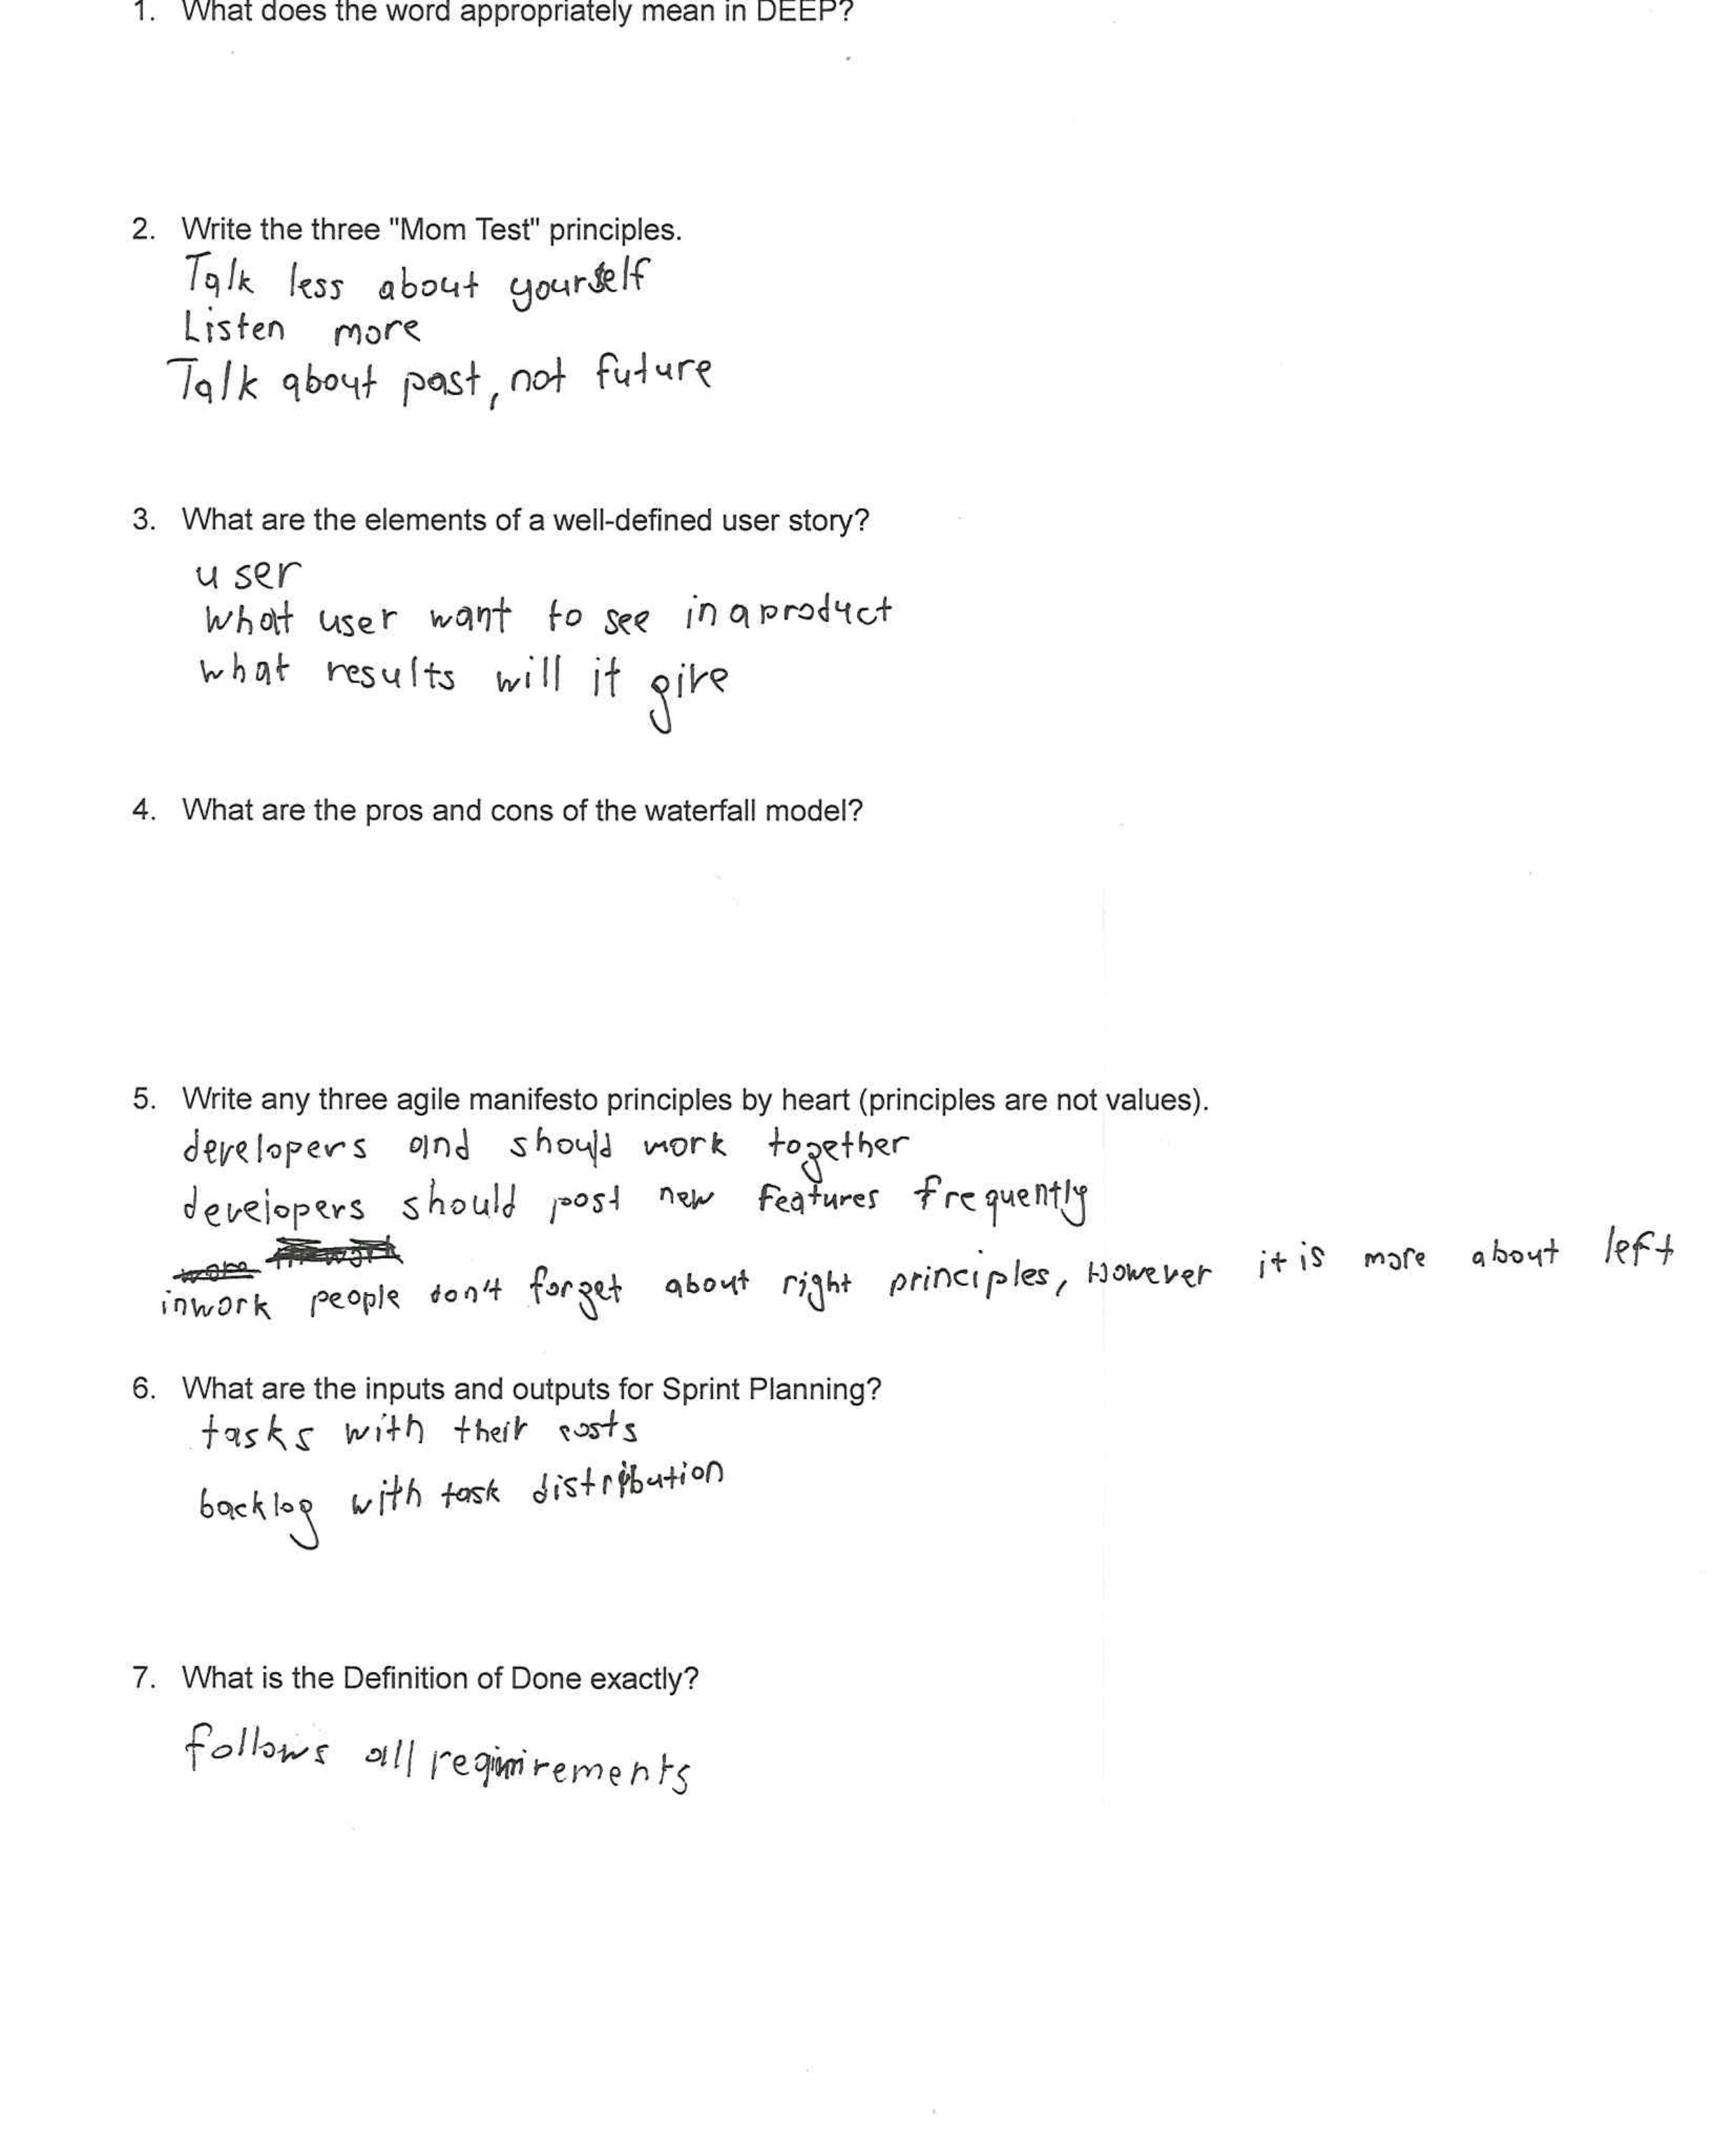 1. What does the word appropriately mean in DEEP?
2. Write the three "Mom Test" principles.
Talk less about yourself
Listen more
Talk about past, not future
3. What are the elements of a well-defined user story?
user
what user want to see in a product
what results will it give
4. What are the pros and cons of the waterfall model?
5. Write any three agile manifesto principles by heart (principles are not values).
developers and should work together
developers should post new features frequently
in work people don't forget about right principles, However it is more about left
6. What are the inputs and outputs for Sprint Planning?
tasks with their costs
backlog with task distribution
7. What is the Definition of Done exactly?
follows all requirements